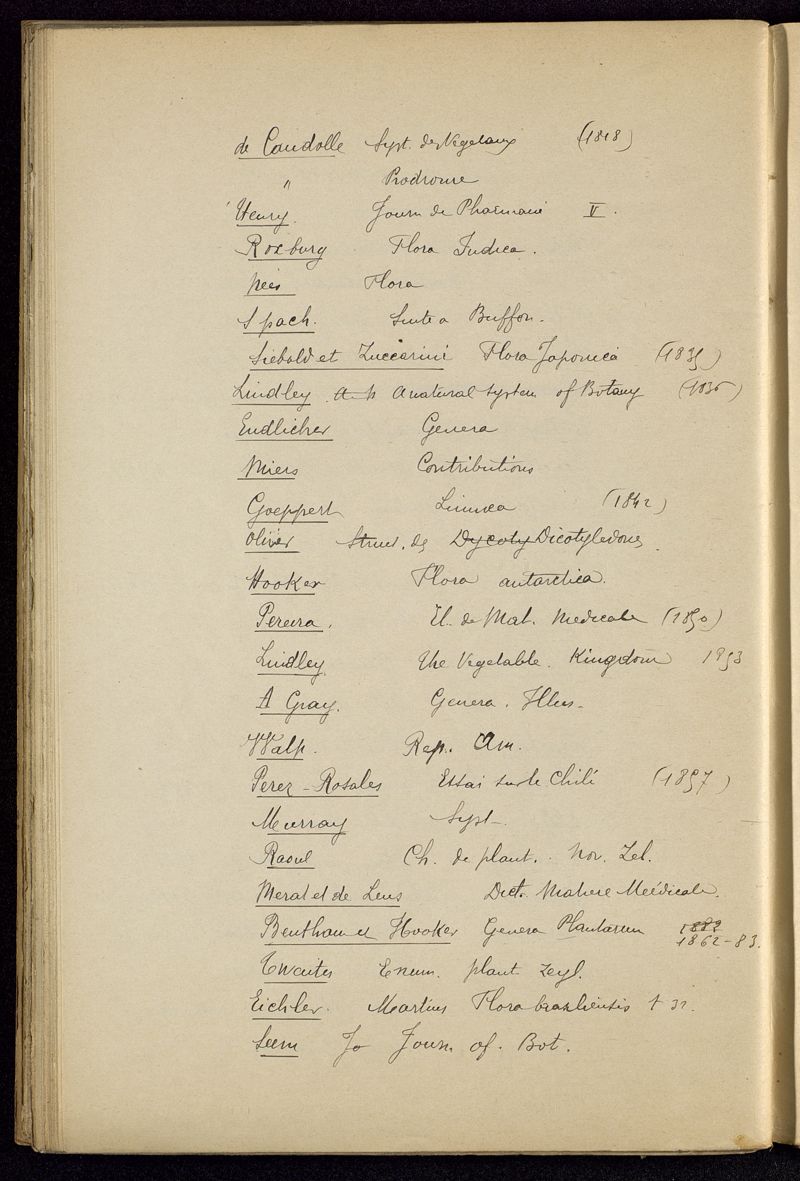 de Candolle Syst. des Vegetaux (1818)
" Prodrome
Henry. Journ de Pharmacie V.
Roxburg Flora Indica.
Nees Flora
Spach. Suite a Buffon.
Siebold et Zuccarini Flora Japonica (1835)
Lindley A natural system of Botany (1836)
Endlicher Genera
Miers Contributions
Goeppert Linnea (1842)
Oliver Struct. des Dycoty Dicotyledones
Hooker Flora antarctica.
Pereira. El. de Mat. Medicale (1850)
Lindley The Vegetable Kingdom 1853
A Gray. Genera. Illus.
Walp. Rep. Am.
Perez-Rosales Essai sur le Chili (1857)
Murray Syst.
Raoul Ch. de plant. Nov. Zel.
Merat et de Lens Dict. Matiere Médicale.
Bentham et Hooker Genera Plantarum 1882
1862-83.
Twaites Enum. plant Zeyl.
Eichler. Martius Flora brasiliensis
Seem Journ of. Bot.